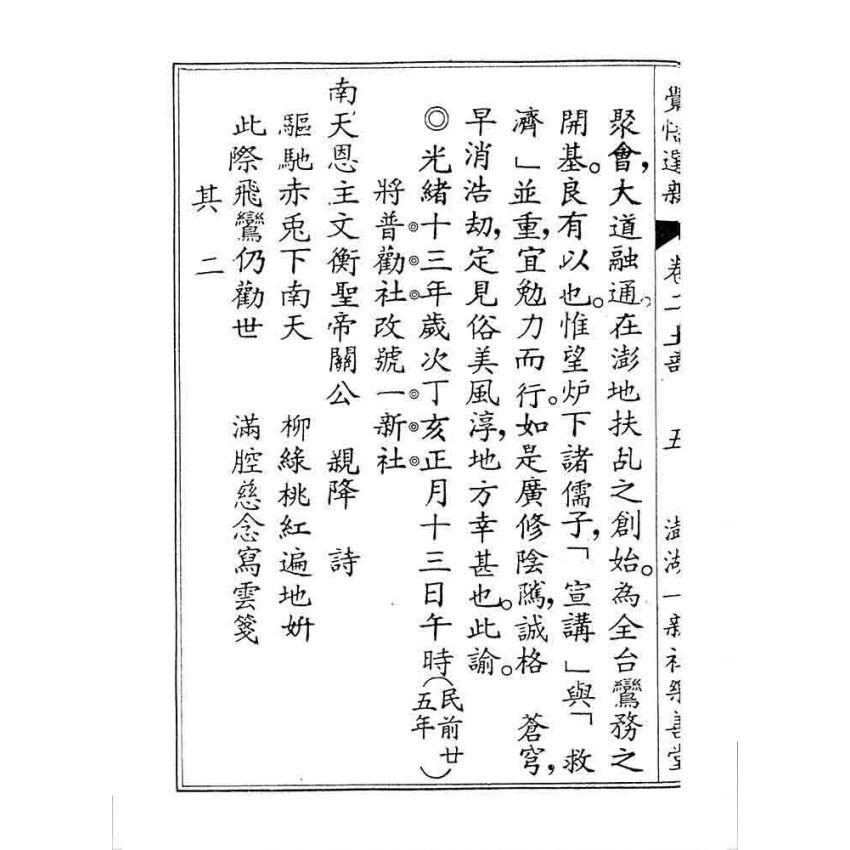 覺悟選新 卷二土部 五 澎湖一新社樂善堂
聚會，大道融通。在澎地扶乩之創始。為全台鸞務之
開基。良有以也。惟望炉下諸儒子，「宣講」與「救
濟」並重，宜勉力而行。如是廣修陰隲，誠格 蒼穹，
早消浩劫，定見俗美風淳，地方幸甚也。此諭。
◎光緒十三年歲次丁亥正月十三日午時（民前廿五年）
將普勸社改號一新社
南天恩主文衡聖帝關公 親降 詩
驅馳赤兎下南天 柳綠桃紅遍地妍
此際飛鸞仍勸世 滿腔慈念寫雲箋
其二